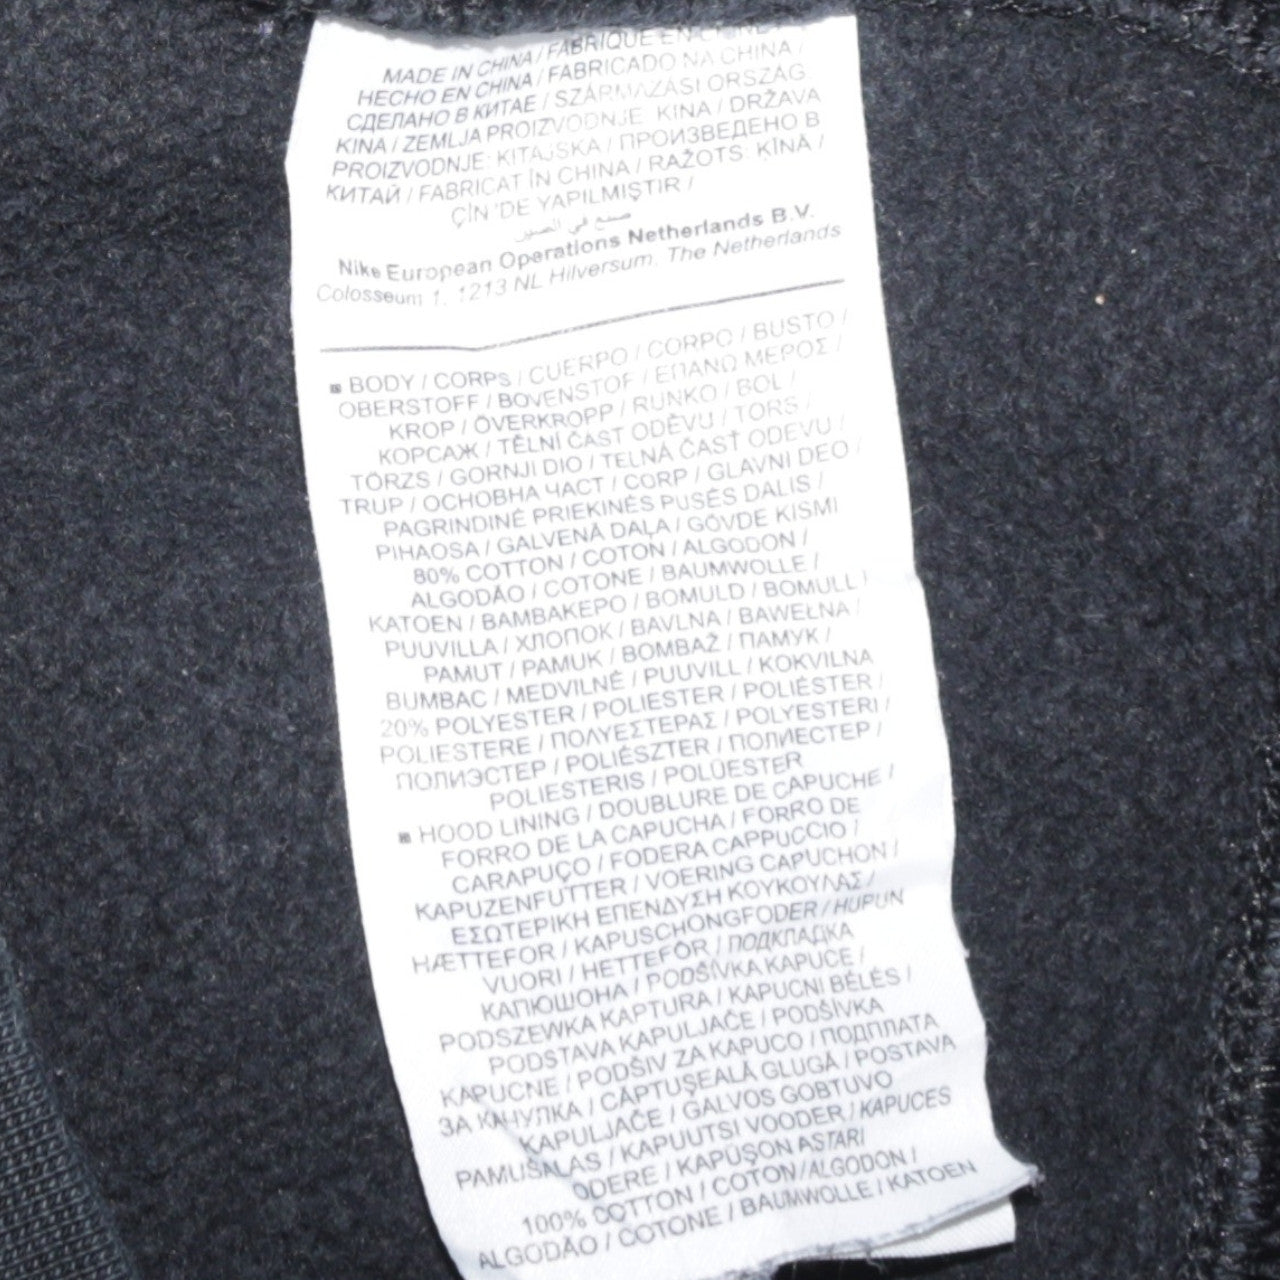 MADE IN CHINA / FABRIQUÉ EN CHINE /
HECHO EN CHINA / FABRICADO NA CHINA /
СДЕЛАНО В КИТАЕ / SZÁRMAZÁSI ORSZÁG:
KINA / ZEMLJA PROIZVODNJE: KINA / DRŽAVA
PROIZVODNJE: KITAJSKA / ПРОИЗВЕДЕНО В
КИТАЙ / FABRICAT ÎN CHINA / RAŽOTS: ĶĪNĀ /
ÇİN 'DE YAPILMIŞTIR /
صنع في الصين
Nike European Operations Netherlands B.V.
Colosseum 1, 1213 NL Hilversum, The Netherlands
BODY / CORPS / CUERPO / CORPO / BUSTO /
OBERSTOFF / BOVENSTOF / ΕΠΑΝΩ ΜΕΡΟΣ /
KROP / ÖVERKROPP / RUNKO / BOL /
КОРСАЖ / TĚLNÍ ČÁST ODĚVU / TORS /
TÖRZS / GORNJI DIO / TELNÁ ČASŤ ODEVU /
TRUP / ОСНОВНА ЧАСТ / CORP / GLAVNI DEO /
PAGRINDINĖ PRIEKINĖS PUSĖS DALIS /
PIHAOSA / GALVENĀ DAĻA / GÖVDE KISMI
80% COTTON / COTON / ALGODON /
ALGODÃO / COTONE / BAUMWOLLE /
KATOEN / ΒΑΜΒΑΚΕΡΟ / BOMULD / BOMULL /
PUUVILLA / ХЛОПОК / BAVLNA / BAWEŁNA /
PAMUT / PAMUK / BOMBAŽ / ПАМУК /
BUMBAC / MEDVILNĖ / PUUVILL / KOKVILNA
20% POLYESTER / POLIESTER / POLIÉSTER /
POLIESTERE / ΠΟΛΥΕΣΤΕΡΑΣ / POLYESTERI /
ПОЛИЭСТЕР / POLIÉSZTER / ПОЛИЕСТЕР /
POLIESTERIS / POLÜESTER
HOOD LINING / DOUBLURE DE CAPUCHE /
FORRO DE LA CAPUCHA / FORRO DE
CARAPUÇO / FODERA CAPPUCCIO /
KAPUZENFUTTER / VOERING CAPUCHON /
ΕΣΩΤΕΡΙΚΗ ΕΠΕΝΔΥΣΗ ΚΟΥΚΟΥΛΑΣ /
HÆTTEFOR / KAPUSCHONGFODER / HUPUN
VUORI / HETTEFÔR / ПОДКЛАДКА
КАПЮШОНА / PODŠÍVKA KAPUCE /
PODSZEWKA KAPTURA / KAPUCNI BÉLÉS /
PODSTAVA KAPULJAČE / PODŠÍVKA
KAPUCNE / PODŠIV ZA KAPUCO / ПОДПЛАТА
ЗА КАЧУЛКА / CĂPTUŞEALĂ GLUGĂ / POSTAVA
KAPULJAČE / GALVOS GOBTUVO
PAMUŠALAS / KAPUUTSI VOODER / KAPUCES
ODERE / KAPÜŞON ASTARI
100% COTTON / COTON / ALGODON /
ALGODÃO / COTONE / BAUMWOLLE / KATOEN